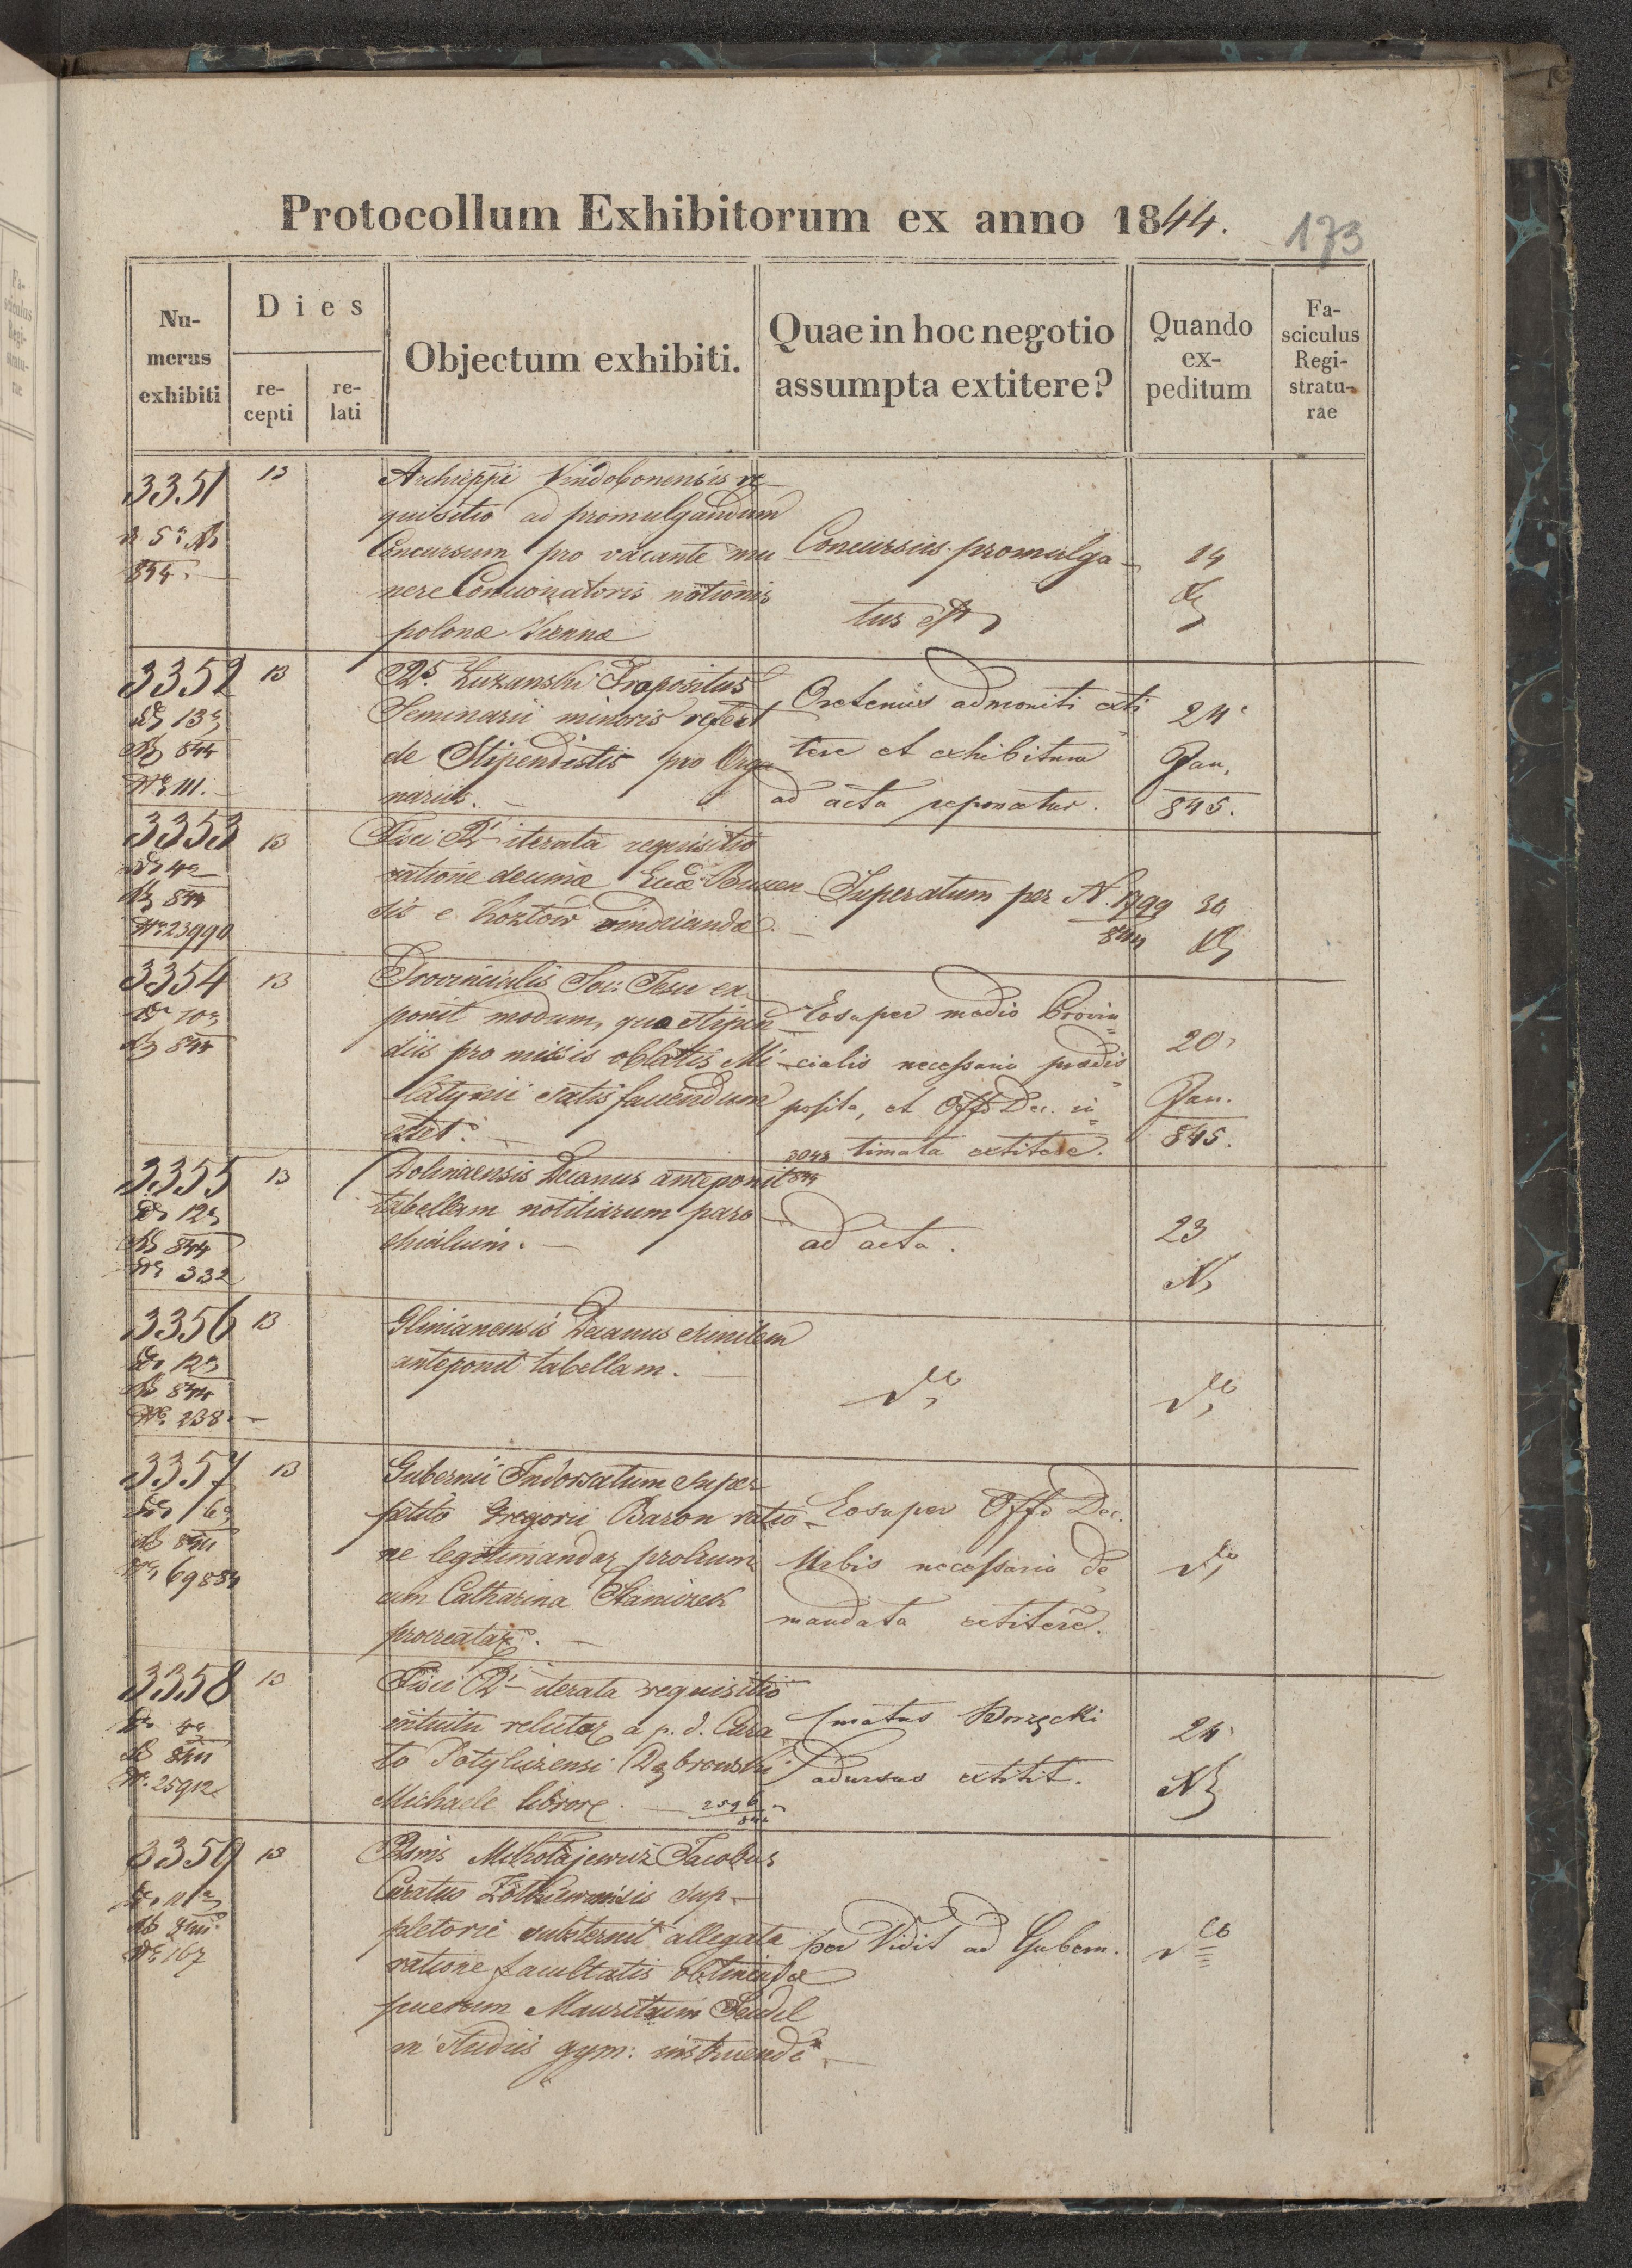 Protocollum Exhibitorum ex anno 1844.
173
Nu-
merus
exhibiti
Dies
re-
cepti
re-
lati
Objectum exhibiti.
Quae in hoc negotio
assumpta extitere?
Quando
ex-
peditum
Fa-
sciculus
Regi-
stratu-
rae
3351
13
844.
Archieppi Vindobonensis re
quisitio ad promulgandum
Concursum pro vacante mu
nere Concionatoris nationis
polonæ Viennæ
Concursus promulga
tus est
14
3352
13
13
844
111.
Luzanski Præpositus
Seminarii minoris refert
de Stipendistis pro Orga
nariis.
Oretenus admoniti exti
tere et exhibitum
ad acta reponatur.
24
Jan.
845.
3353
13
4
844
23990
Fisci Rl iterata requisitio
ratione decimæ Buscen
sis e Kozłow vindicandæ.
Superatum per N. 1799
844
30
3354
13
10
844
Provincialis Soc: Jesu ex
ponit modum, quo stipen
diis pro missis oblatis Mi
latynii satisfaciendum
esset.
Eosuper medio Provin
cialis necessaria prædis
posita, et Offo Dec. in
timata extitere.
20
Jan.
845.
3355
13
12
844
332
Dolinaensis Decanus anteponit
tabellam notitiarum paro
chialium.
3048
844
ad acta.
23
3356
13
12
844
238
Glinianensis Decanus similem
anteponit tabellam.
dto
dto
3357
13
16
844
69884
Gubernii Indorsatum super
petito Gregorii Baron ratio
ne legitimandar prolium
cum Catharina Staniszek
procreatar.
Eosuper Offo Dec.
Urbis necessaria de
mandata extitere.
dto
3358
13
4
844
25912
Fisci Rl iterata requisitio
intuitu relictor a p. d. Cura
to Potyliczensi Dąbrowski
Michaele libror.
2596
844
Curatus Worzęcki
adursus extitit.
24
3359
13
11
844
167
Mikołajewicz Jacobus
Curatus Żołkiewensis sup
pletorie substernit allegata
ratione facultatis obtinendæ
puerum Mauritium Seidel
in studiis gym: instruendi
per Vidit ad Gubern.
dto